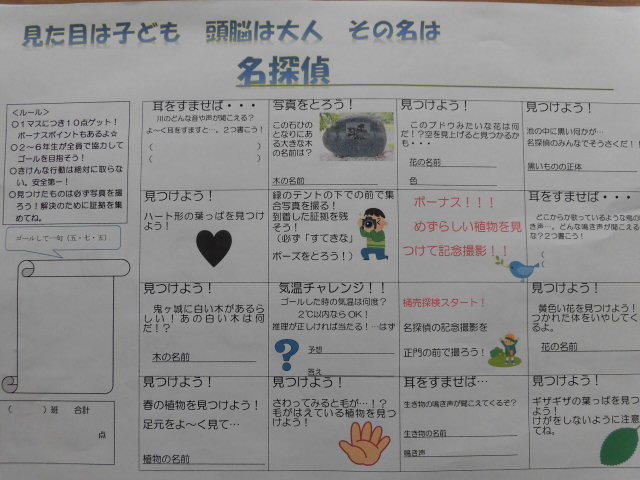 見た目は子ども　頭脳は大人　その名は
名探偵
＜ルール＞
○１マスにつき１０点ゲット！
ボーナスポイントもあるよ☆
○２～６年生が全員で協力して
ゴールを目指そう！
○きけんな行動は絶対に取らな
い。安全第一！
○見つけたものは必ず写真を撮
ろう！解決のために証拠を集
めてね。
ゴールして一句（五・七・五）
（　　　）班　合計
点
耳をすませば・・・
川のどんな音や声が聞こえる？
よ～く耳をすますと…。２つ書こう！
（　　　）
（　　　）
写真をとろう！
この石ひの
となりにあ
る大きな木
の名前は？
木の名前
見つけよう！
このブドウみたいな花は何
だ！？空を見上げると見つかるか
も・・・
花の名前
色
見つけよう！
池の中に黒い何かが…
名探偵のみんなでそうさくだ！！
黒いものの正体
見つけよう！
ハート形の葉っぱを見つけ
よう！
緑のテントの下での前で集
合写真を撮る！
到着した証拠を残
そう！
（必ず「すてきな」
ポーズをとろう！）
ボーナス！！！
めずらしい植物を見
つけて記念撮影！！
耳をすませば・・・
どこからか歌っているような鳥の
声…。どんな鳴き声が聞こえるか
な？２つ書こう！
（
（
見つけよう！
鬼ヶ城に白い木があるら
しい！あの白い木は何
だ！？
木の名前
気温チャレンジ！！
ゴールした時の気温は何度？
２℃以内ならOK！
推理が正しければ当たる！…はず
予想
答え
桶売探検スタート！
名探偵の記念撮影を
正門の前で撮ろう！
見つけよう！
黄色い花を見つけよう！
つかれた体をいやしてく
るよ。
花の名前
見つけよう！
春の植物を見つけよう！
足元をよ～く見て…
植物の名前
見つけよう！
さわってみると毛が…！？
毛がはえている植物を見つ
けよう！
耳をすませば…
生き物の鳴き声が聞こえてくるぞ？
生き物の名前
鳴き声
見つけよう！
ギザギザの葉っぱを見つけ
よう！
けがをしないように注意
てね。